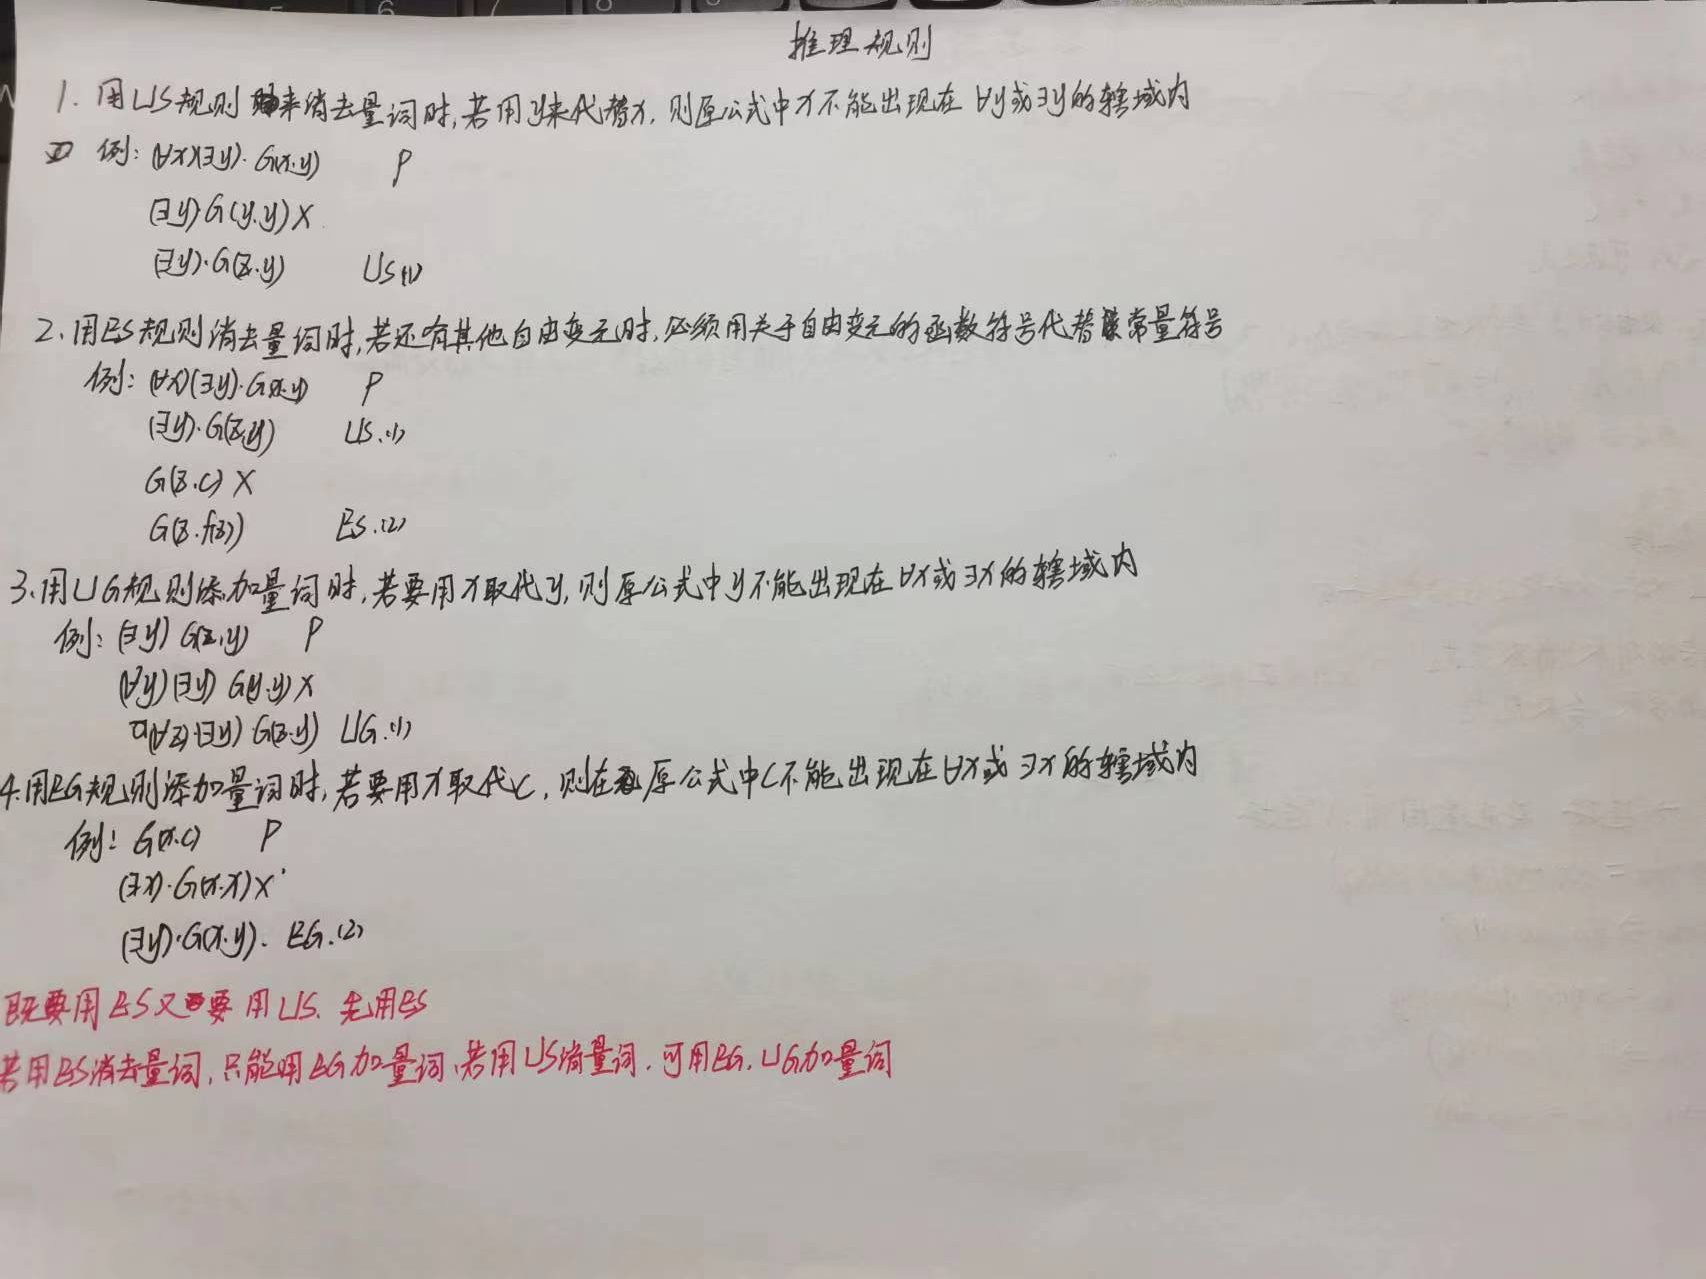 推理规则
1. 用US规则来消去量词时,若用y来代替x, 则原公式中x不能出现在∀y或∃y的辖域内
例: (∀x)(∃y)·G(x,y) P
(∃y)·G(y,y) X
(∃y)·G(z,y) US(1)
2. 用ES规则消去量词时,若还有其他自由变元时,必须用关于自由变元的函数符号代替常量符号
例: (∀x)(∃y)·G(x,y) P
(∃y)·G(z,y) US.(1)
G(z,c) X
G(z,f(z)) ES.(2)
3.用UG规则添加量词时,若要用x取代y,则原公式中y不能出现在∀x或∃x的辖域内
例: (∃y) G(z,y) P
(∀y)(∃y) G(y,y) X
(∀z)·(∃y) G(z,y) UG.(1)
4.用EG规则添加量词时,若要用x取代c, 则在原公式中c不能出现在∀x或∃x的辖域内
例: G(x,c) P
(∃x)·G(x,x) X
(∃y)·G(x,y). EG.(2)
既要用ES又要用US. 先用ES
若用ES消去量词,只能用EG加量词,若用US消量词.可用EG.UG加量词